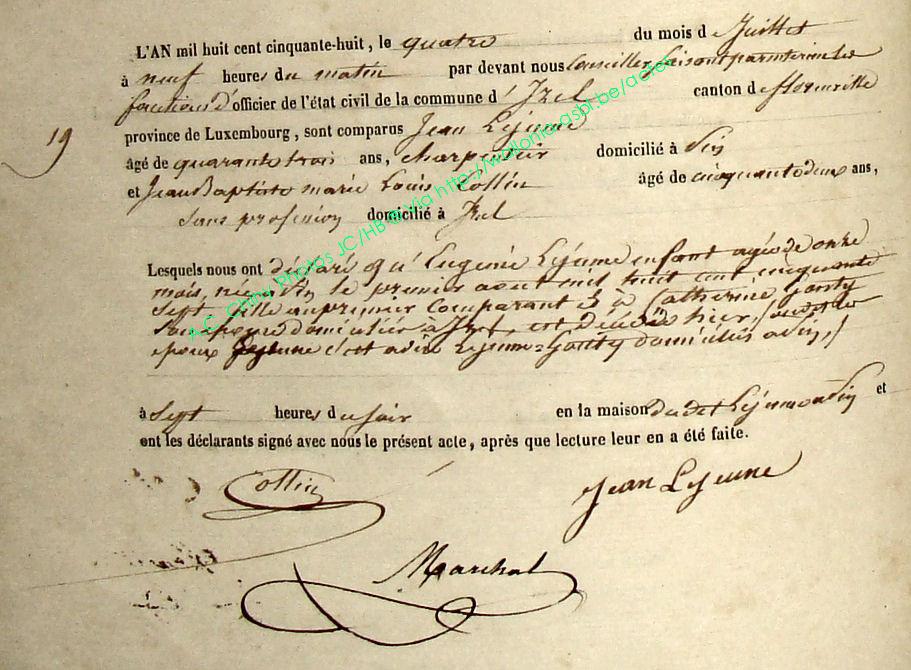 L'AN mil huit cent cinquante-huit, le quatre du mois de Juillet
à neuf heures du matin par devant nous Conseiller faisant par interim les
fonctions d'officier de l'état civil de la commune d'Izel canton de florenville
19
province de Luxembourg, sont comparus Jean Lejeune
âgé de quarante trois ans, charpentier domicilié à Pin
et Jean Baptiste marie Louis Collin âgé de cinquante deux ans,
sans profession domicilié à Izel
Lesquels nous ont déclaré qu'Eugénie Lejeune enfant agée de onze
mois, née à Pin le premier aout mil huit cent cinquante
sept fille au premier comparant et à Catherine Gonty
son épouse domiciliée à Izel, est décédée hier,
époux Lejeune c'est à dire Lejeune=Gonty domiciliés à Pin,/
à Sept heures du soir en la maison dudit Lejeune à Pin et
ont les déclarants signé avec nous le présent acte, après que lecture leur en a été faite.
Collin
Jean Lejeune
Marchal
A.C. Chiny Photos JC/HB © Via http://wallonia-asbl.be/actes